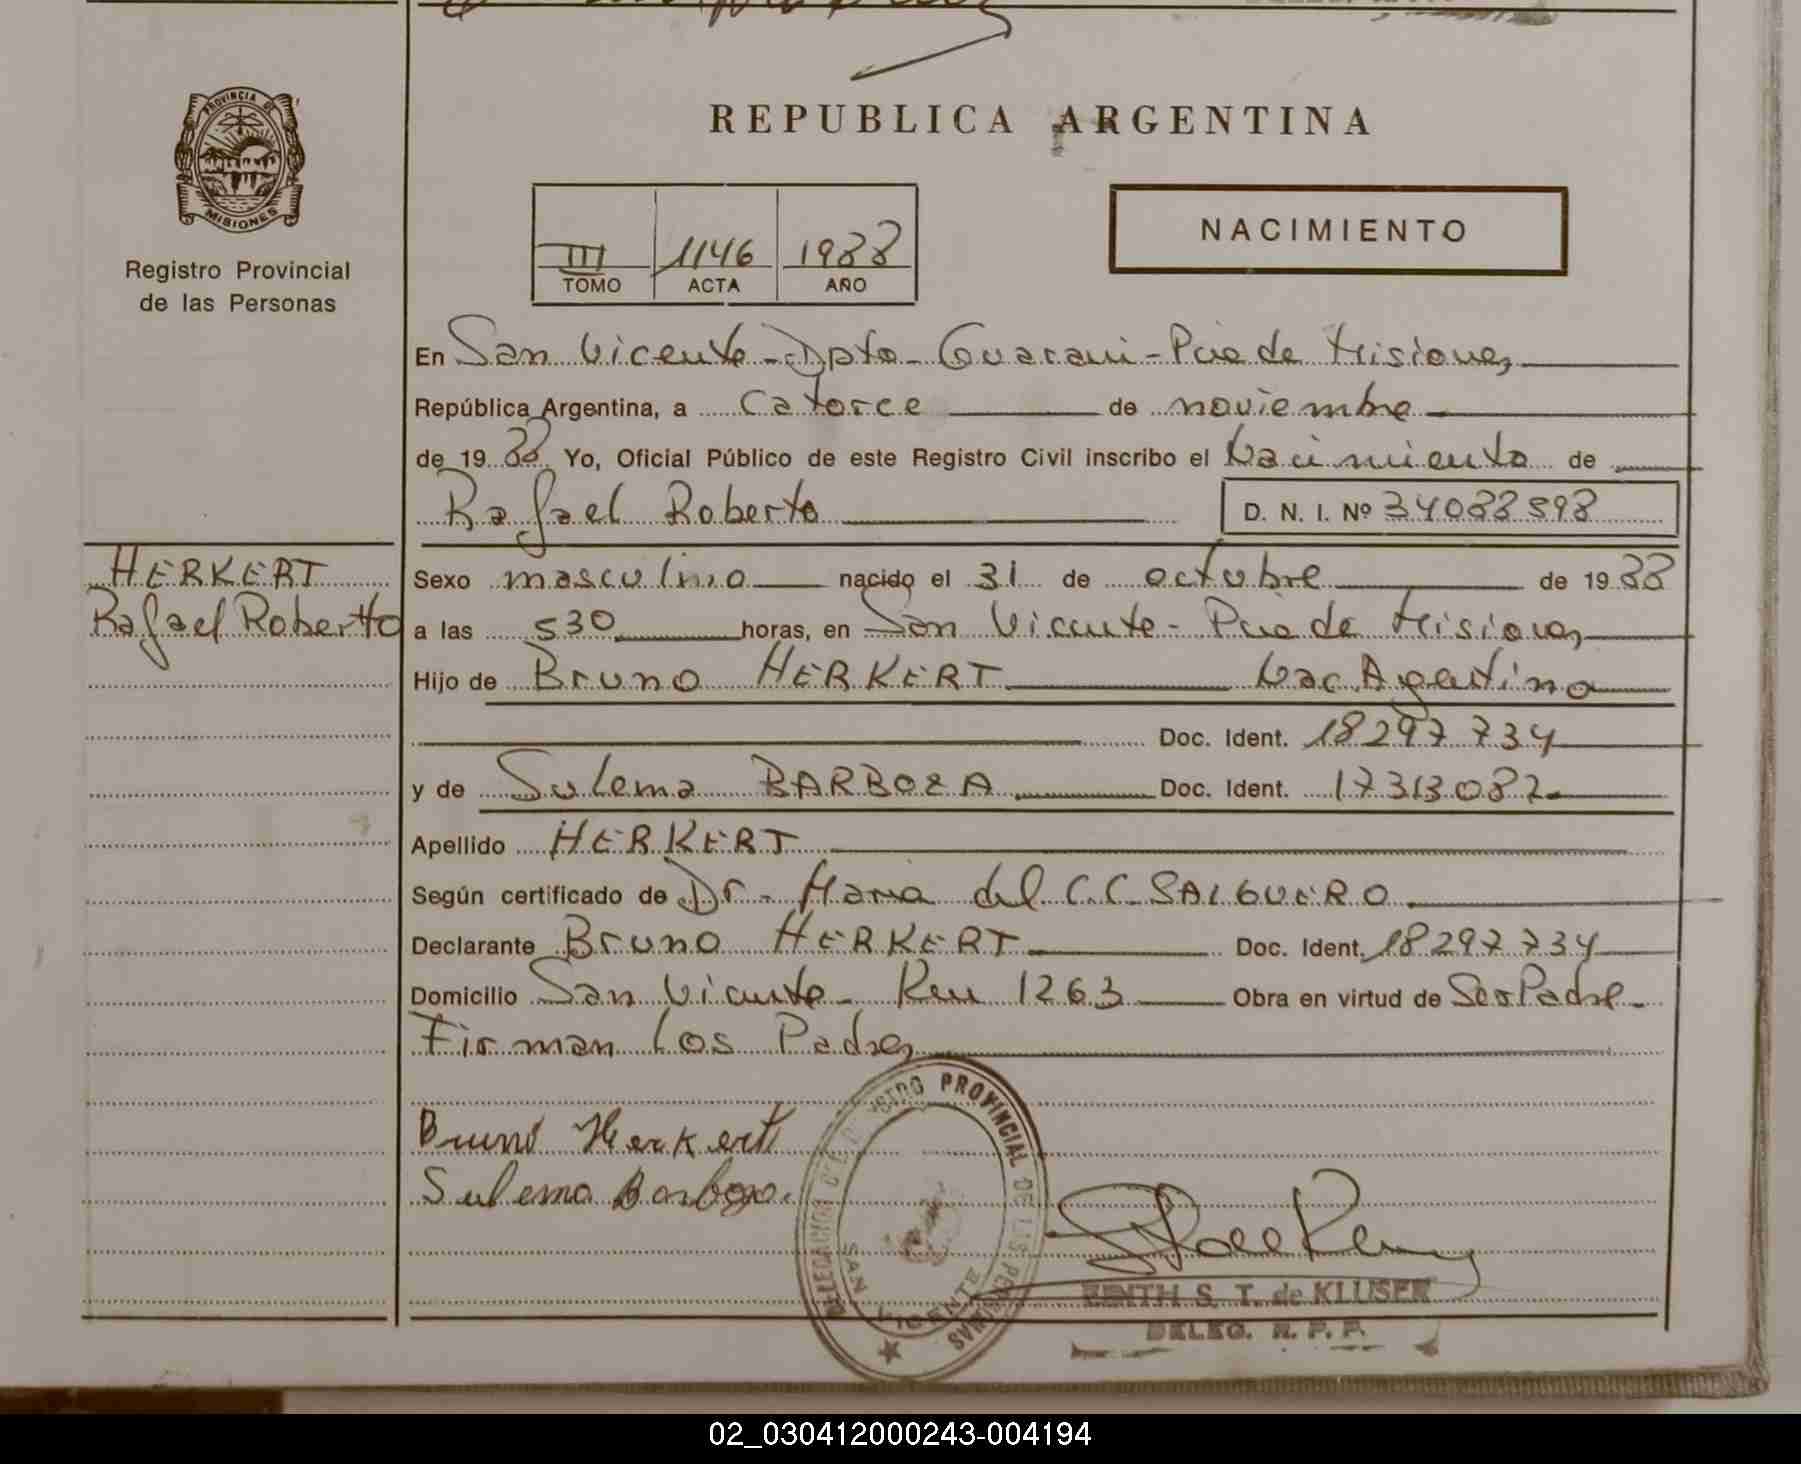 PROVINCIA DE
MISIONES
Registro Provincial
de las Personas
REPUBLICA ARGENTINA
III 1146 1988
TOMO ACTA AÑO
NACIMIENTO
En San Vicente - Dpto - Guarani - Pcia de Misiones
República Argentina, a catorce de noviembre
de 1988 Yo, Oficial Público de este Registro Civil inscribo el Nacimiento de
Rafael Roberto D. N. I. Nº 34088598
HERKERT
Rafael Roberto
Sexo masculino nacido el 31 de octubre de 1988
a las 530 horas, en San Vicente - Pcia de Misiones
Hijo de Bruno HERKERT Nac. Argentino
Doc. Ident. 18297734
y de Sulema BARBOZA Doc. Ident. 17313082
Apellido HERKERT
Según certificado de Dr - Maria del C.C. SALGUERO
Declarante Bruno HERKERT Doc. Ident. 18297734
Domicilio San Vicente - Km 1263 Obra en virtud de Ser Padre
Firman Los Padres
Bruno Herkert
Sulema Barboza.
DELEGACION DEL REGISTRO PROVINCIAL DE LAS PERSONAS
SAN VICENTE
EDITH S. T. de KLUSER
DELEG. R. P. P.
02_030412000243-004194